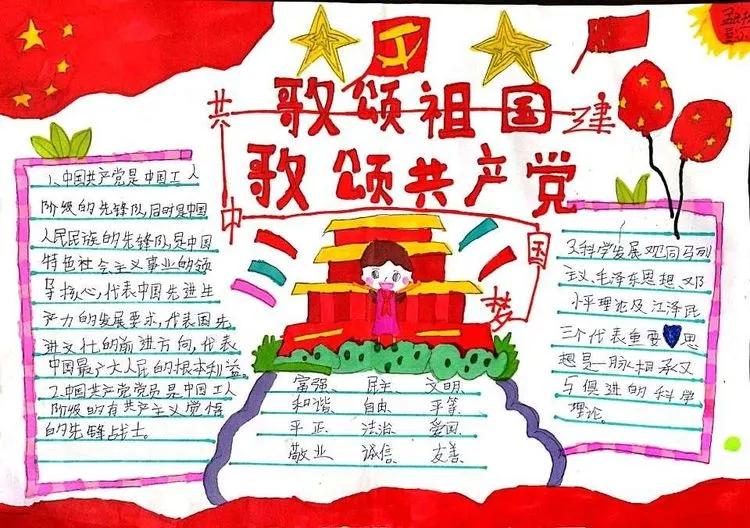 歌颂祖国
歌颂共产党
共建
中国
梦
1、中国共产党是中国工人
阶级的先锋队,同时是中国
人民民族的先锋队,是中国
特色社会主义事业的领
导核心,代表中国先进生
产力的发展要求,代表国先
进文化的前进方向,代表
中国最广大人民的根本利益。
2.中国共产党党员是中国工人
阶级的有共产主义觉悟
的先锋战士。
富强 民主 文明
和谐 自由 平等
平正 法治 爱国
敬业 诚信 友善
3.科学发展观同马列
主义、毛泽东思想、邓
小平理论及江泽民
三个代表重要思
想是一脉相承又
与俱进的科学
理论。